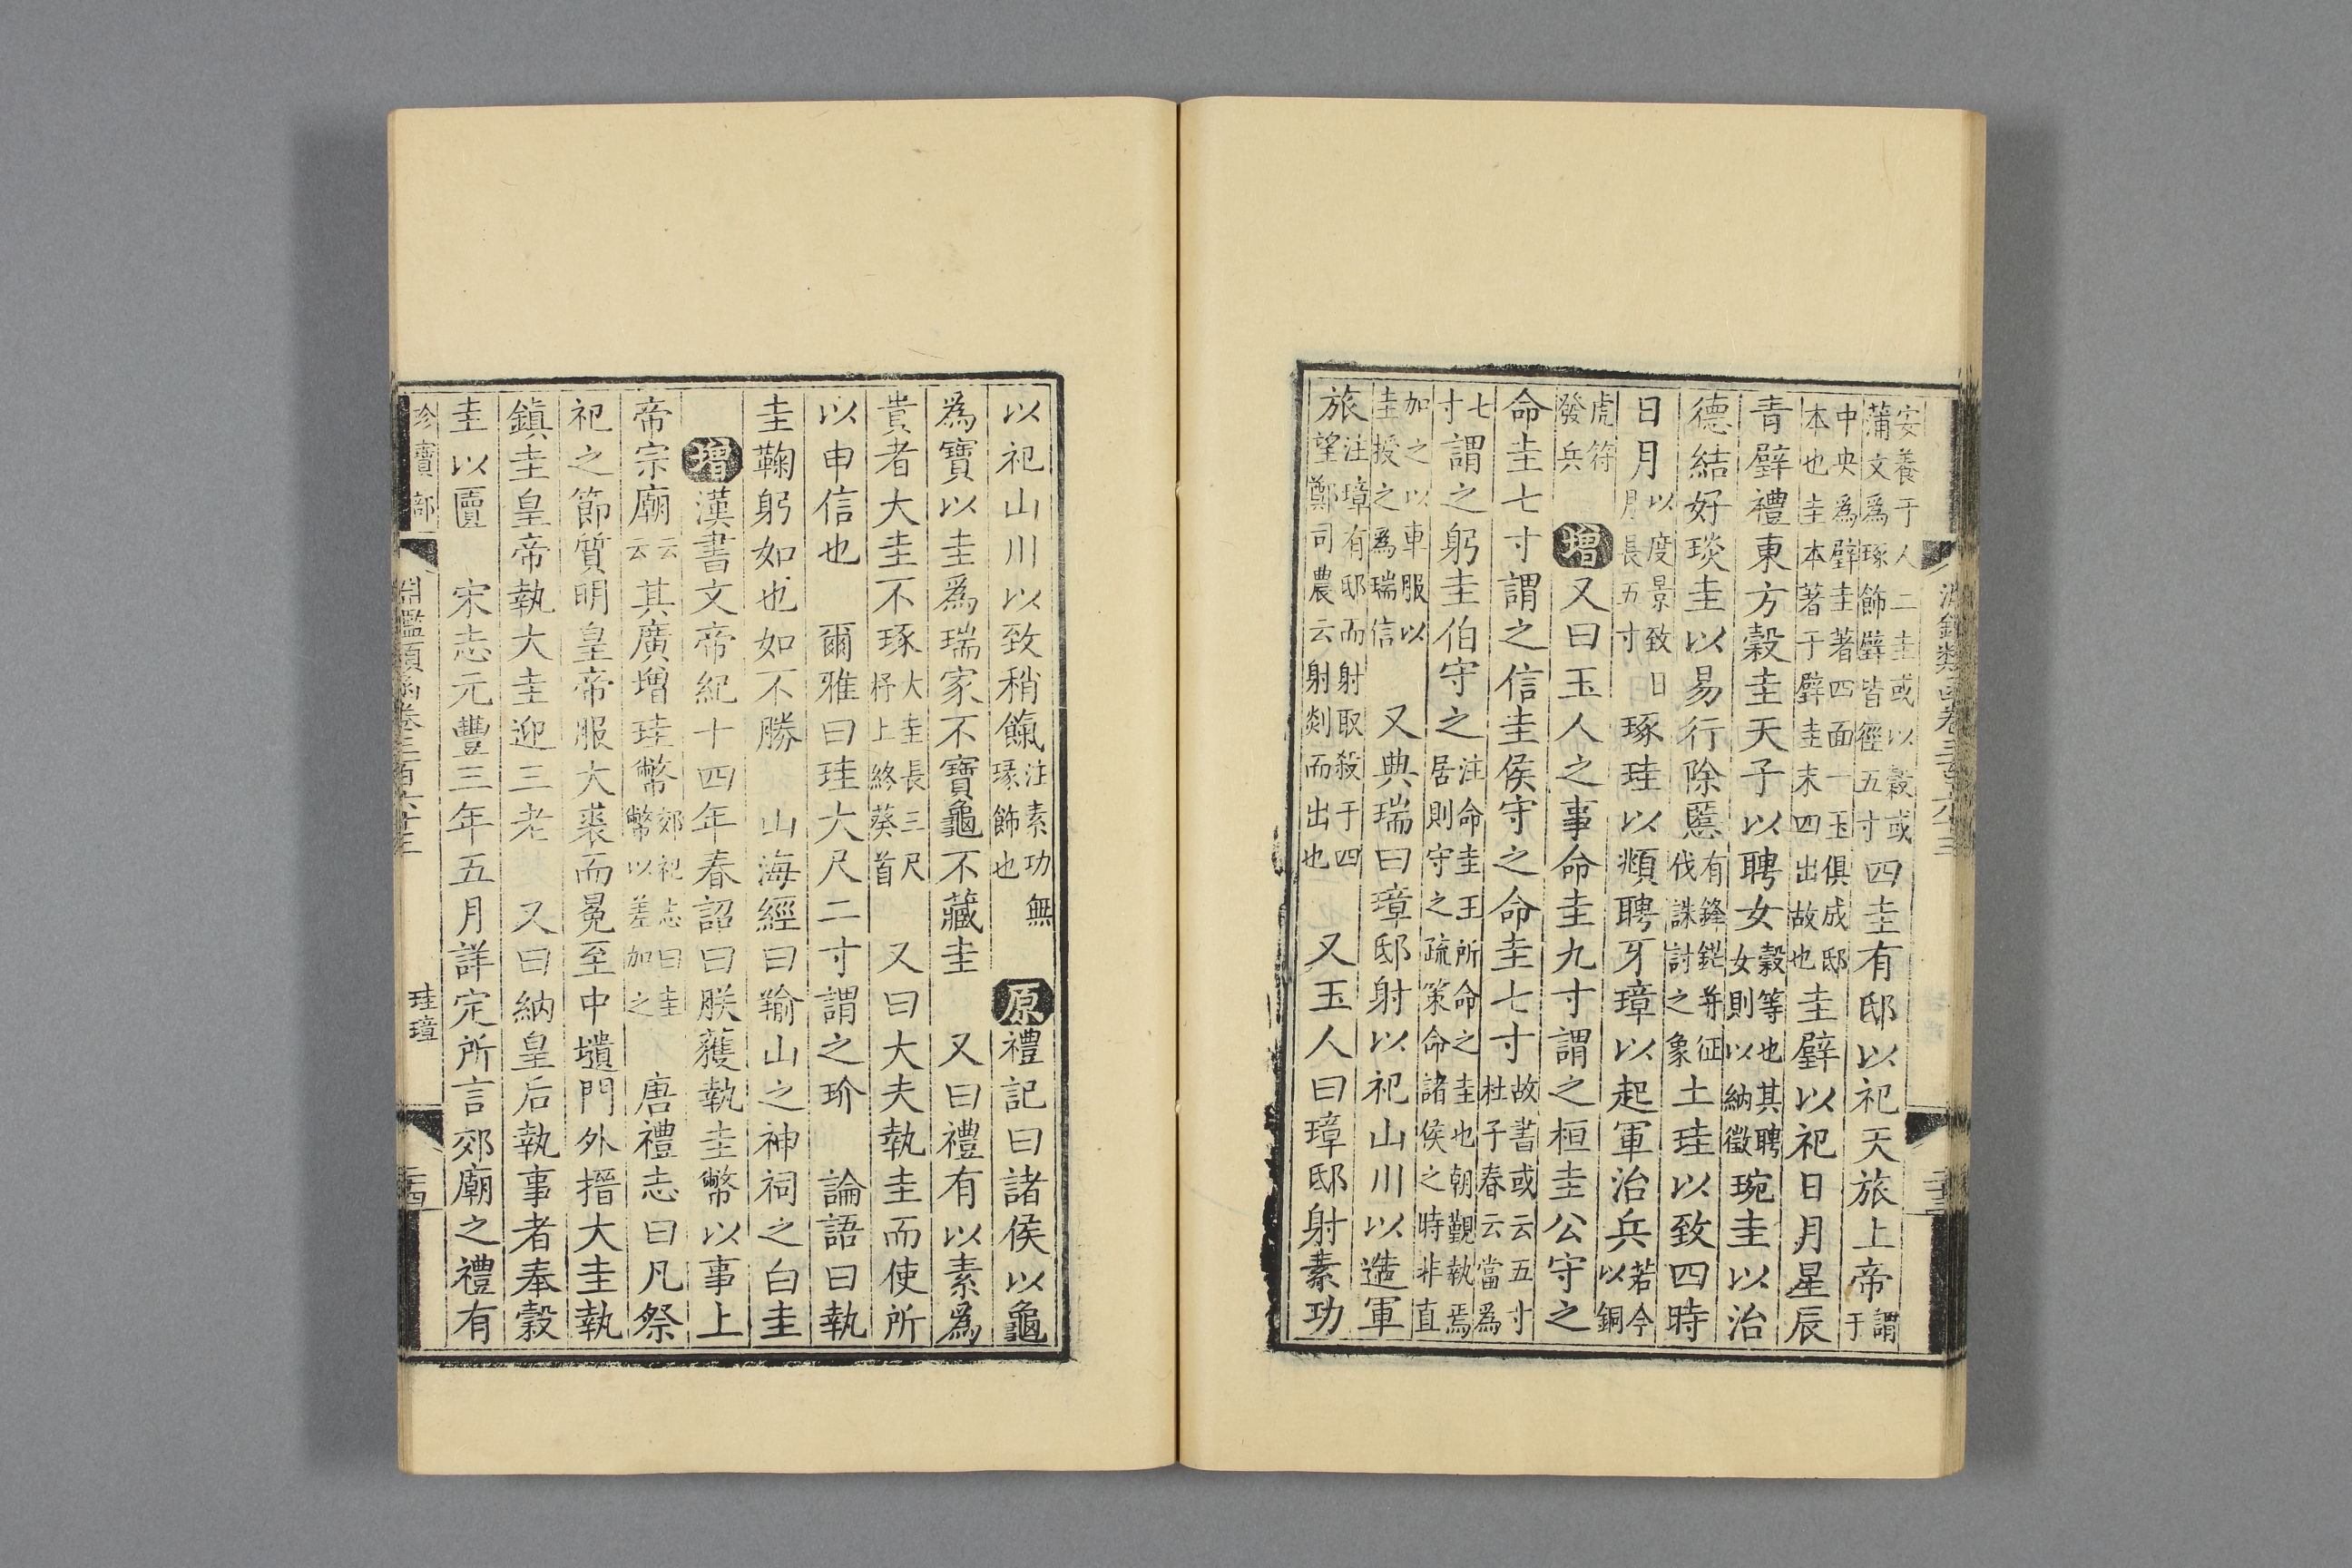 安養于人二圭或以穀或蒲文爲琢飾璧皆徑五寸四圭有邸以祀天旅上帝謂于
中央爲璧圭著四面一玉俱成邸本也圭本著于璧圭末四出故也圭璧以祀日月星辰
青璧禮東方穀圭天子以聘女穀等也其聘女則以納徵琬圭以治
德結好琰圭以易行除慝有鋒鋩并征伐誅討之象土珪以致四時
日月以度景致日月長五寸琢珪以頫聘牙璋以起軍治兵若今以銅
虎符發兵 增又曰玉人之事命圭九寸謂之桓圭公守之
命圭七寸謂之信圭侯守之命圭七寸故書或云五寸杜子春云當爲
七寸謂之躬圭伯守之注命圭王所命之圭也朝覲執焉居則守之疏策命諸侯之時非直
加之以車服以圭授之爲瑞信 又典瑞曰璋邸射以祀山川以造軍
旅注璋有邸而射取殺于四望鄭司農云射剡而出也 又玉人曰璋邸射素功
以祀山川以致稍餼注素功無瑑飾也 原禮記曰諸侯以龜
爲寶以圭爲瑞家不寶龜不藏圭 又曰禮有以素爲
貴者大圭不琢大圭長三尺杼上終葵首 又曰大夫執圭而使所
以申信也 爾雅曰珪大尺二寸謂之玠 論語曰執
圭鞠躬如也如不勝 山海經曰羭山之神祠之白圭
增漢書文帝紀十四年春詔曰朕獲執圭幣以事上
帝宗廟云云其廣增珪幣郊祀志曰圭幣以差加之 唐禮志曰凡祭
祀之節質明皇帝服大裘而冕至中壝門外搢大圭執
鎮圭皇帝執大圭迎三老 又曰納皇后執事者奉穀
圭以匵 宋志元豐三年五月詳定所言郊廟之禮有
珍寶部 淵鑑類函卷三百六十三 珪璋